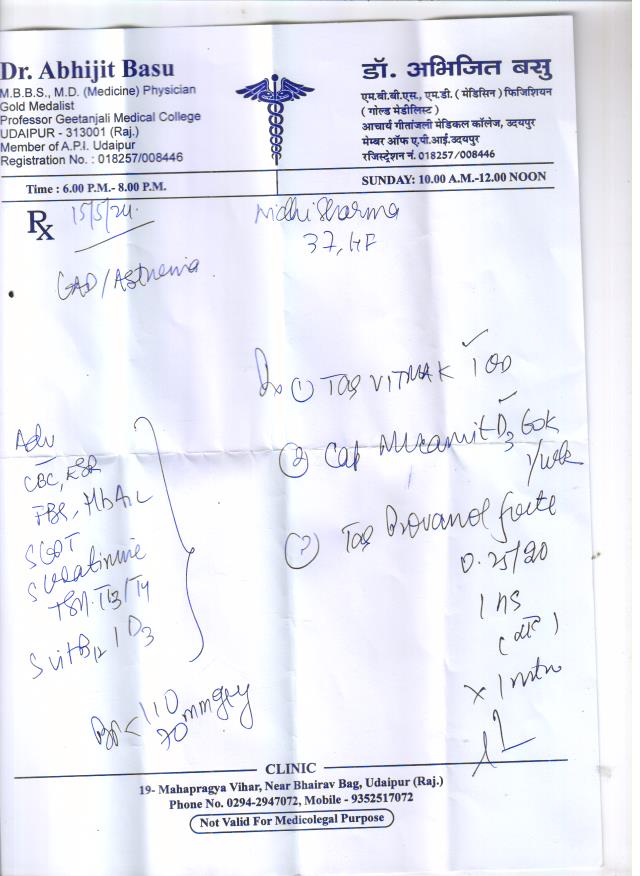 Dr. Abhijit Basu
M.B.B.S., M.D. (Medicine) Physician
Gold Medalist
Professor Geetanjali Medical College
UDAIPUR - 313001 (Raj.)
Member of A.P.I. Udaipur
Registration No. : 018257/008446
डॉ. अभिजित बसु
एम.बी.बी.एस., एम.डी. ( मेडिसिन ) फिजिशियन
( गोल्ड मेडीलिस्ट )
आचार्य गीतांजली मेडिकल कॉलेज, उदयपुर
मेम्बर ऑफ ए.पी.आई.उदयपुर
रजिस्ट्रेशन नं. 018257/008446
Time : 6.00 P.M.- 8.00 P.M.
SUNDAY: 10.00 A.M.-12.00 NOON
Rx
15/5/24
Nidhi Sharma
37, F
GAD/Asthenia
① Tab VITMAK T OD
② Cap D3 60K
1/wk
Tab Provanol forte
0.25/20
1 hs
× 1 mth
Adv
CBC, ESR
FBS, HbA1c
SGOT
S Creatinine
TSH T3/T4
S vit B12 / D3
BP < 110
70 mmHg
CLINIC
19- Mahapragya Vihar, Near Bhairav Bag, Udaipur (Raj.)
Phone No. 0294-2947072, Mobile - 9352517072
Not Valid For Medicolegal Purpose